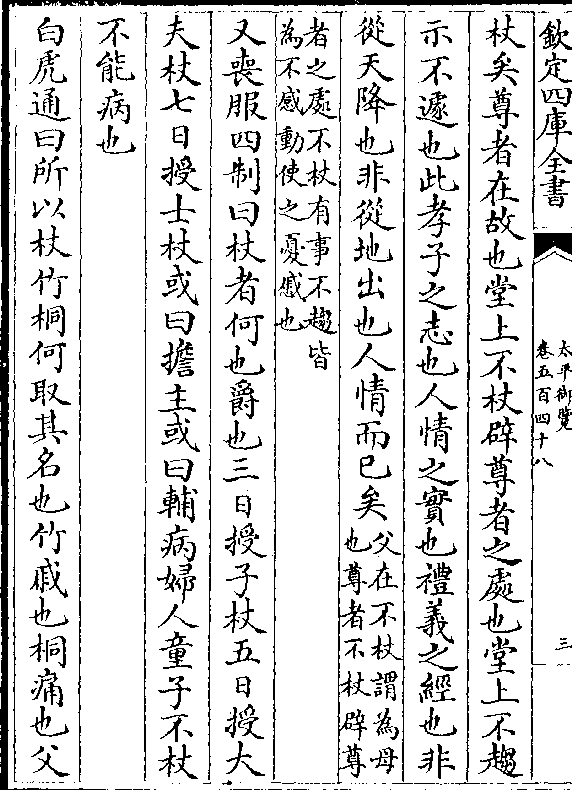 欽定四庫全書
太平御覽
卷五百四十八
三
杖矣尊者在故也堂上不杖辟尊者之處也堂上不趨
示不遽也此孝子之志也人情之實也禮義之經也非
從天降也非從地出也人情而已矣父在不杖謂為母
也尊者不杖辟尊
者之處不杖有事不趨皆
為不感動使之憂慼也
又喪服四制曰杖者何也爵也三日授子杖五日授大
夫杖七日授士杖或曰擔主或曰輔病婦人童子不杖
不能病也
白虎通曰所以杖竹桐何取其名也竹慼也桐痛也父